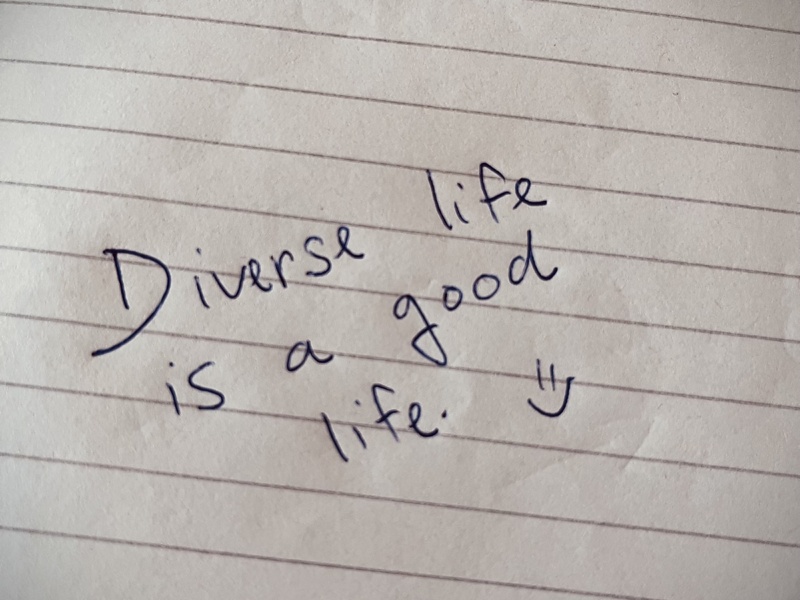 Diverse life
is a good
life. =)